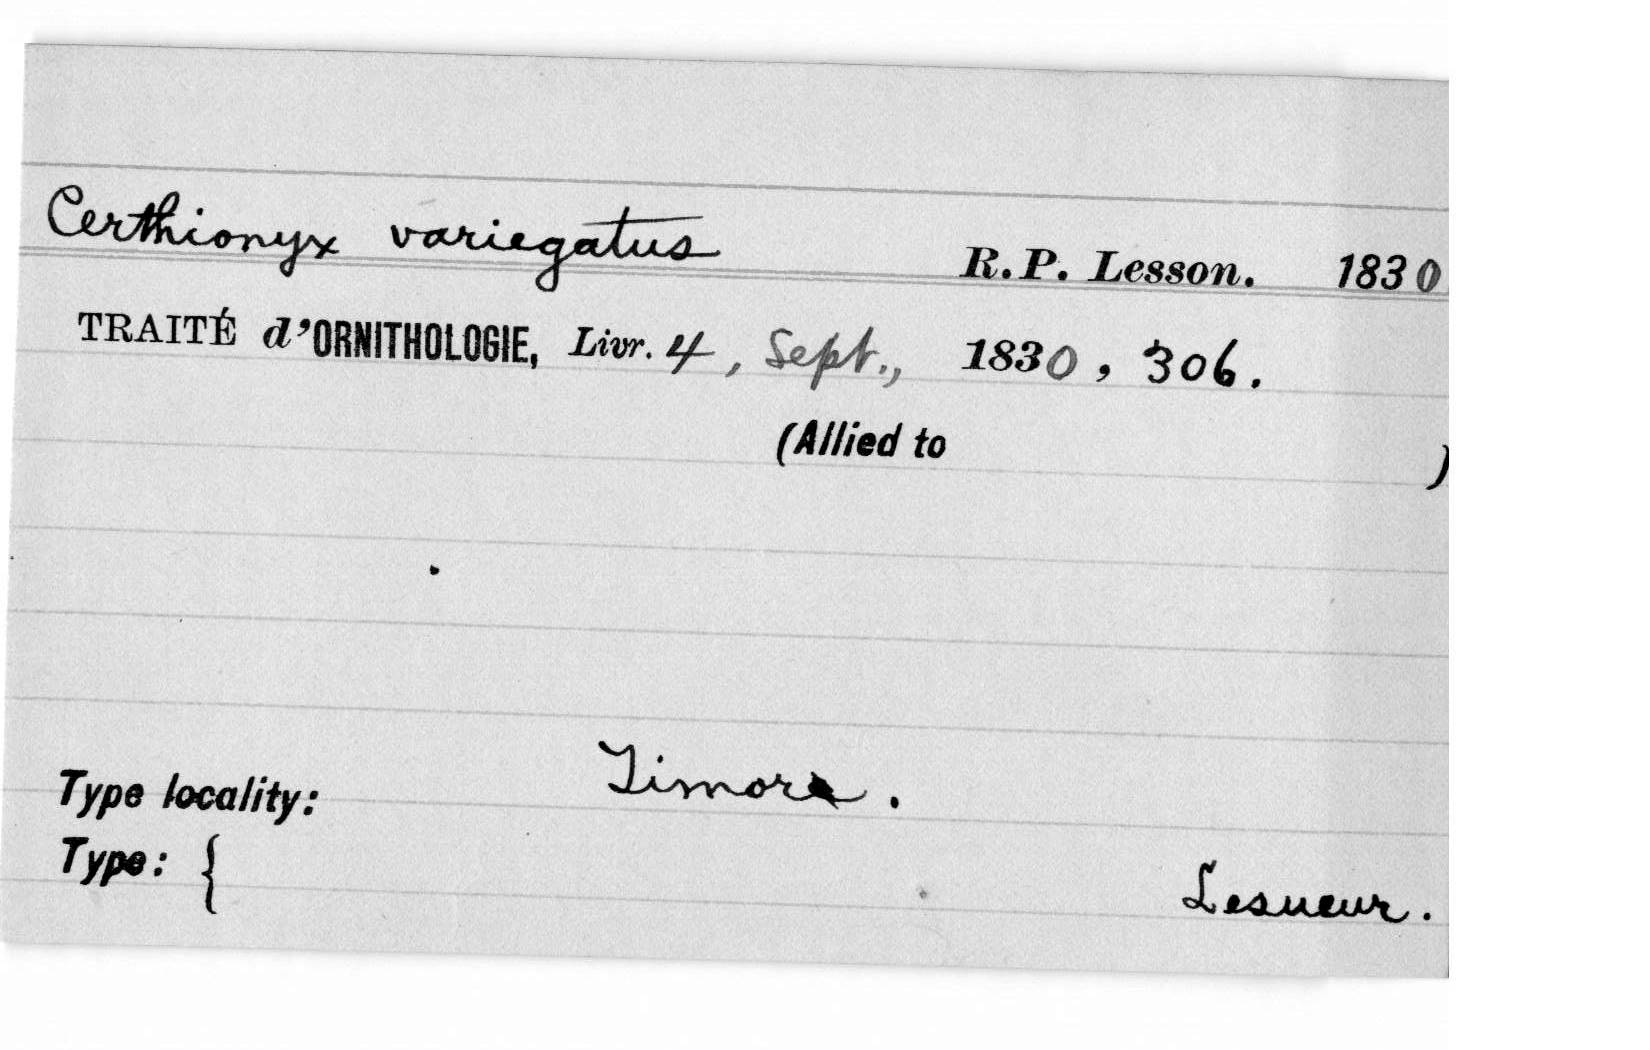 Certhionyx variegatus R.P. Lesson. 1830
TRAITÉ d'ORNITHOLOGIE, Livr. 4, Sept., 1830, 306.
(Allied to )
Type locality: Timor.
Type: { Lesueur.